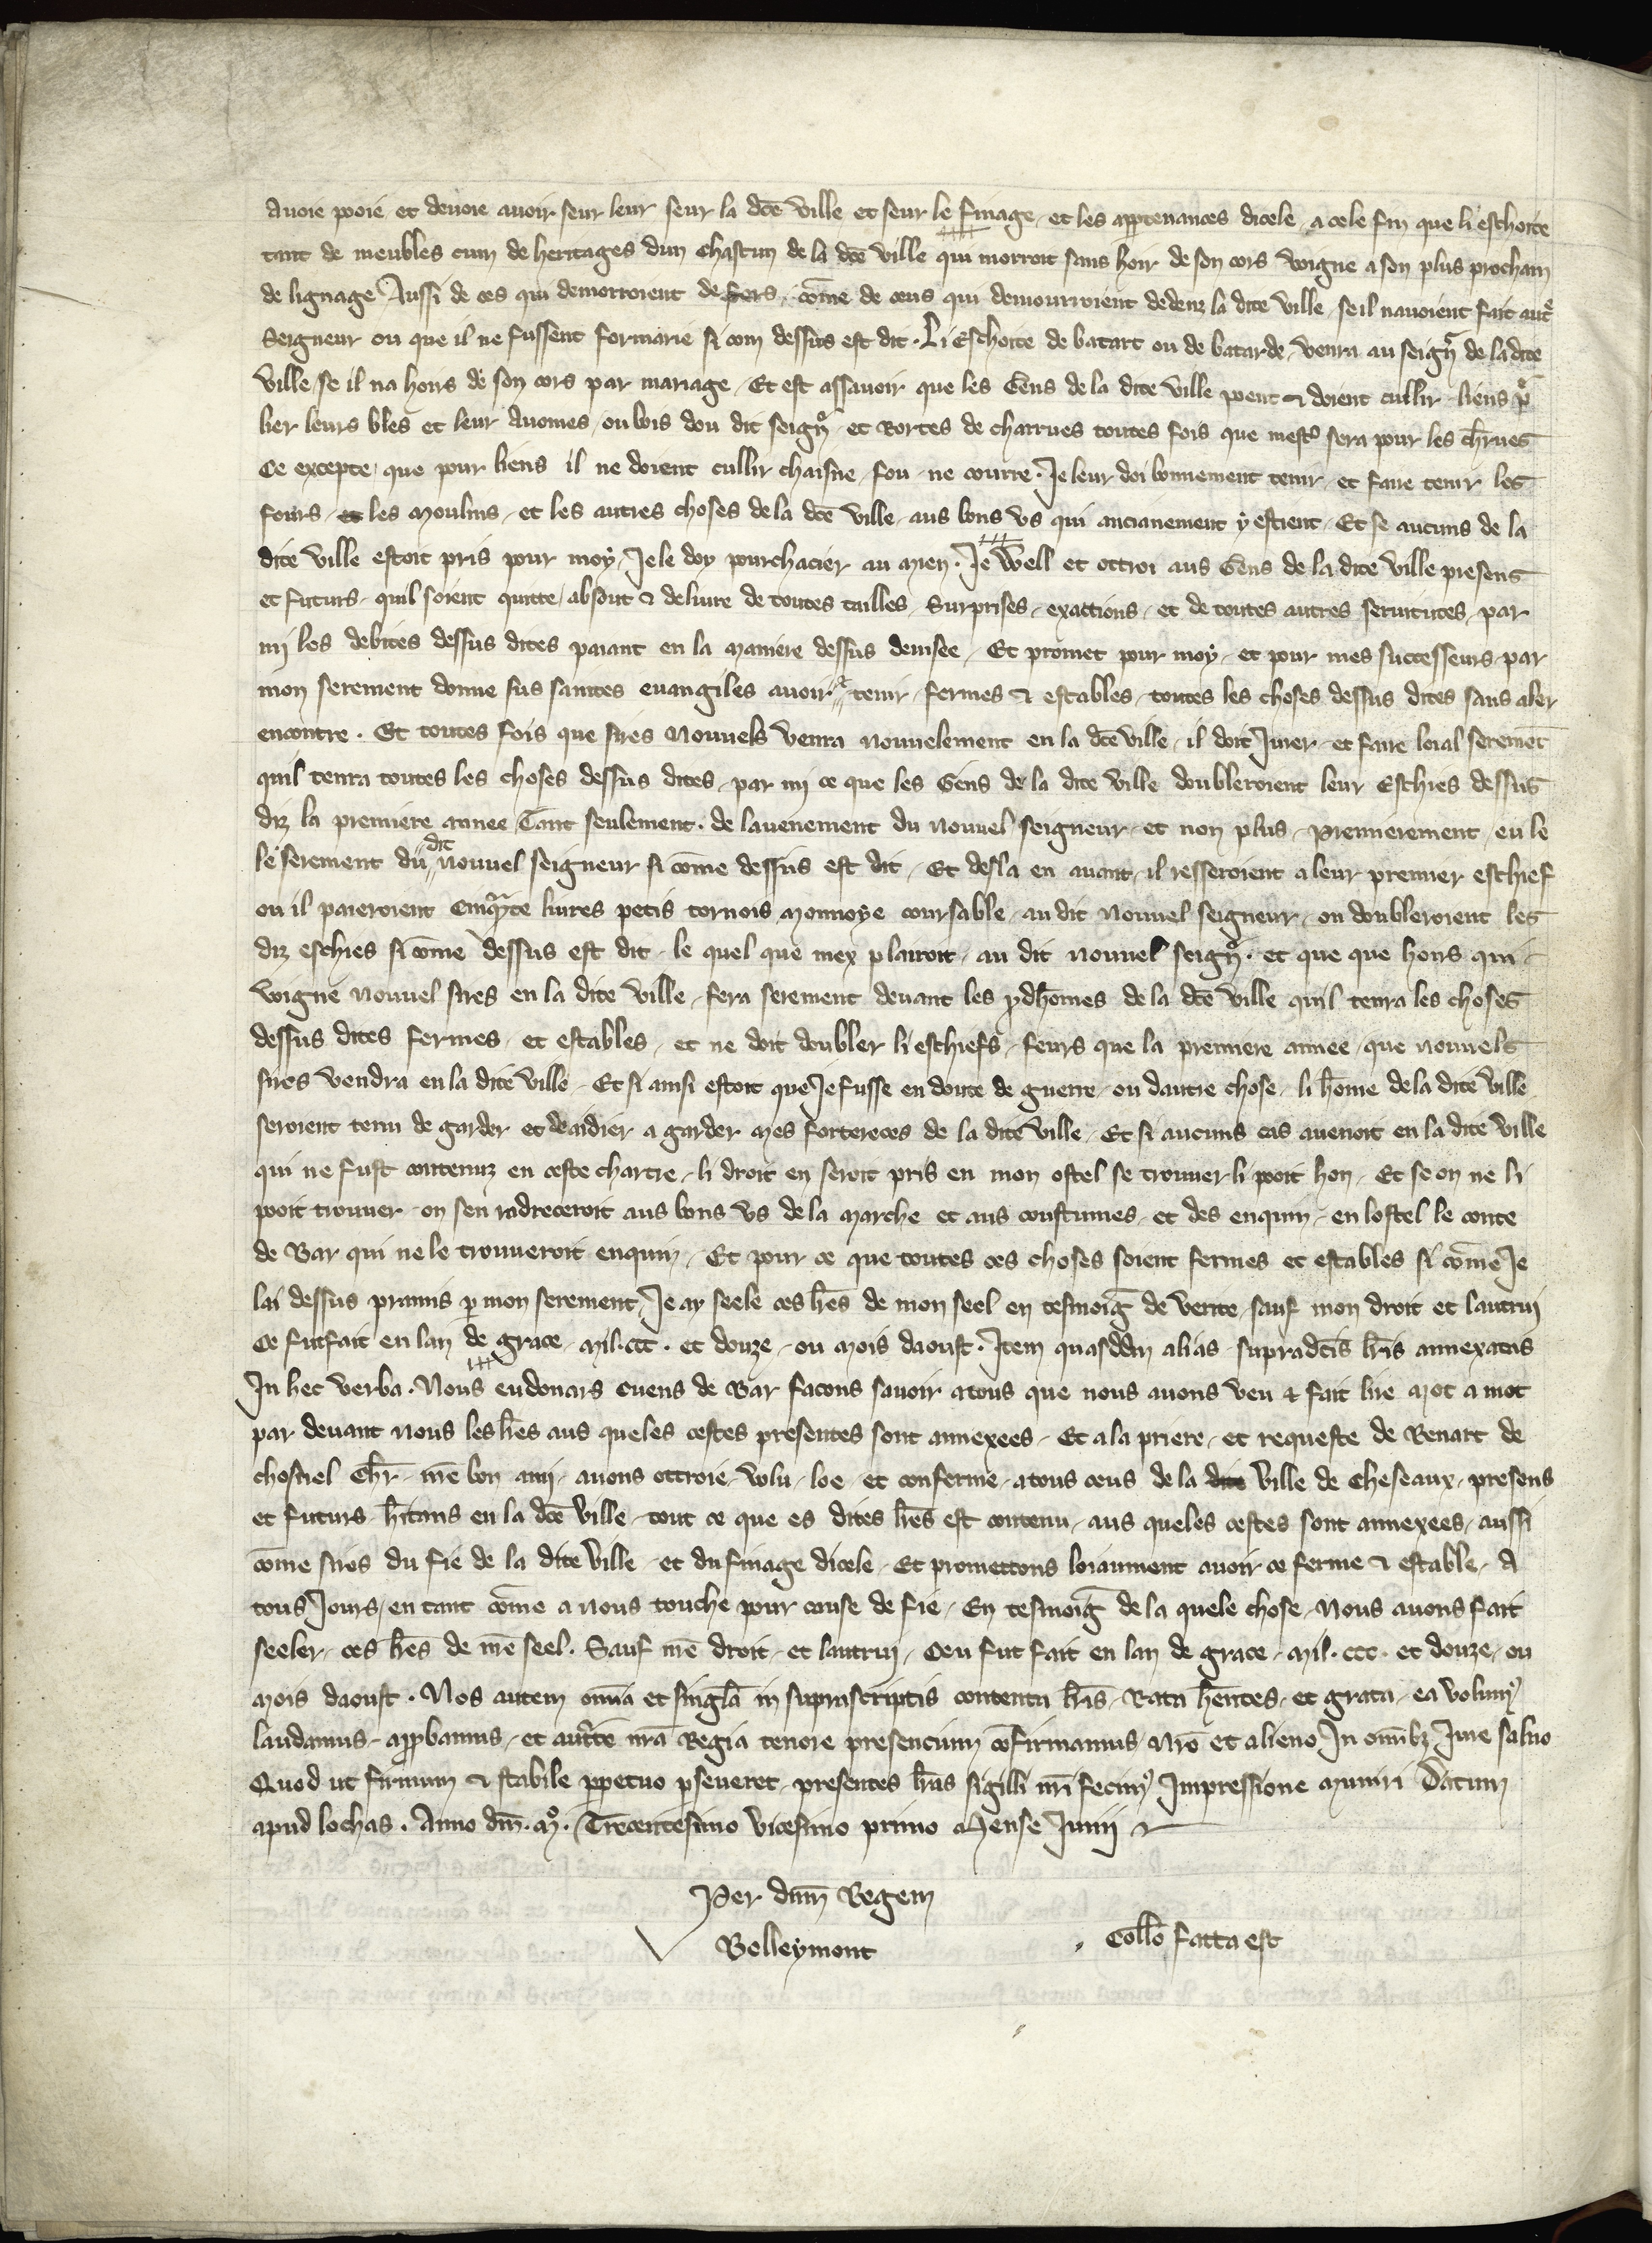 avoie pooie et devoie avoir seur leur seur la dce ville et seur le finage et les apptenances dicele a cele fin que li eschoite
tant de meubles cum de heritages dun chascun de la dce ville qui morroit sans hoir de son cors voigne a son plus prochain
de lignage Aussi de ces qui demorroient defors come de ceus qui demourroient dedenz la dite ville se il navoient fait autre
Seigneur ou que il ne fussent formarie si com dessus est dit . Li Eschoite de batart ou de batarde venra au seignr de la dite
ville se il na hoirs de son cors par mariage Et est assavoir que les Gens de la dite ville poent & doient cullir liens pr
lier leurs bles et leur avoines ou bois dou dit seignr et Rortes de charrues toutes fois que mest sera pour les chrues
Ce excepte que pour liens il ne doient cullir chaisne fou ne courre . Je leur doi bonnement tenir et faire tenir les
fours et les Moulins et les autres choses de la dce ville aus bons us qui ancianement y estient Et se aucuns de la
dite ville estoit pris pour moy Je le doy pourchacier au Mien . Je Well et ottroi aus Gens de la dite ville presens
et futurs quil soient quitte absout & delivre de toutes tailles Surprises exactions et de toutes autres servitutes par
mi les debites dessus dites paiant en la Maniere dessus devisee Et promet pour moy et pour mes successeurs par
mon serement donne sus saintes euvangiles avoir & tenir fermes & estables toutes les choses dessus dites sans aler
encontre . Et toutes fois que sires Nouvels venra nouvelement en la dce ville il doit Jurer et faire loial seremet
quil tenra toutes les choses dessus dites par mi ce que les Gens de la dite ville doubleroient leur Eschies dessus
diz la premiere annee Tant seulement . de lavenement du nouvel seigneur et non plus Premierement eu le
le serement du dit nouvel seigneur si come dessus est dit Et desla en avant il resseroient a leur premier eschief
ou il paieroient Cinqante livres petis tornois Monnoye coursable au dit nouvel seigneur ou doubleroient les
diz eschies si come dessus est dit le quel que mex plairoit au dit nouvel seignr . et que que hons qui
voigne nouvel sires en la dite ville fera serement devant les pdhomes de la dce ville quil tenra les choses
dessus dites fermes et estables et ne doit doubler li eschiefs feurs que la premiere annee que nouvels
sires vendra en la dite ville Et si ainsi estoit que Je fusse en doute de guerre ou dautre chose li home de la dite ville
seroient tenu de garder et de aidier a garder Mes fortereces de la dite ville Et si aucuns cas avenoit en la dite ville
qui ne fust contenuz en ceste chartre li droit en seroit pris en mon ostel se trouver li pooit hon Et se on ne li
pooit trouver on sen radreceroit aus bons us de la Marche et aus coustumes et des enquin en lostel le conte
de Bar qui ne le trouveroit enquin Et pour ce que toutes ces choses soient fermes et estables si come Je
lai dessus pramis p mon serement Je ay seele ces lres de mon seel en tesmoig de verite sauf mon droit et lautrui
Ce fut fait en lan de grace Mil . ccc . et douze ou Mois daoust . Item quasddm alias supradcis lris annexatas
In hec verba . Nous eudouars Cuens de Bar facons savoir a tous que nous avons veu & fait lire Mot a mot
par devant nous les lres aus queles cestes presentes sont annexees Et a la priere et requeste de Renart de
choisuel Chr me bon ami avons ottroie volu loe et conferme a tous ceus de la dite ville de Cheseaux presens
et futurs hitans en la dce ville tout ce que es dites lres est contenu aus queles cestes sont annexees aussi
come sires du fie de la dite ville et du finage dicele Et promettons loiaument avoir ce ferme & estable A
tous Jours en tant come a nous touche pour cause de fie En tesmoig de la quele chose Nous avons fait
seeler ces lres de me seel . Sauf me droit et lautrui Ceu fut fait en lan de grace Mil . ccc . et douze ou
Mois daoust . Nos autem omia et singla in suprascriptis contenta lris Rata hentes et grata ea volum
laudamus appbamus et aucte nra Regia tenore presencium cofirmamus Nro et alieno In omibz Jure salvo
Quod ut firmum & stabile ppetuo pseveret presentes lras sigilli nri fecim Impressione Muniri Datum
apud lochas . Anno dm . Mo . Trecentesimo vicesimo primo Mense Junii
Per dnm Regem
Belleymont
Collo facta est